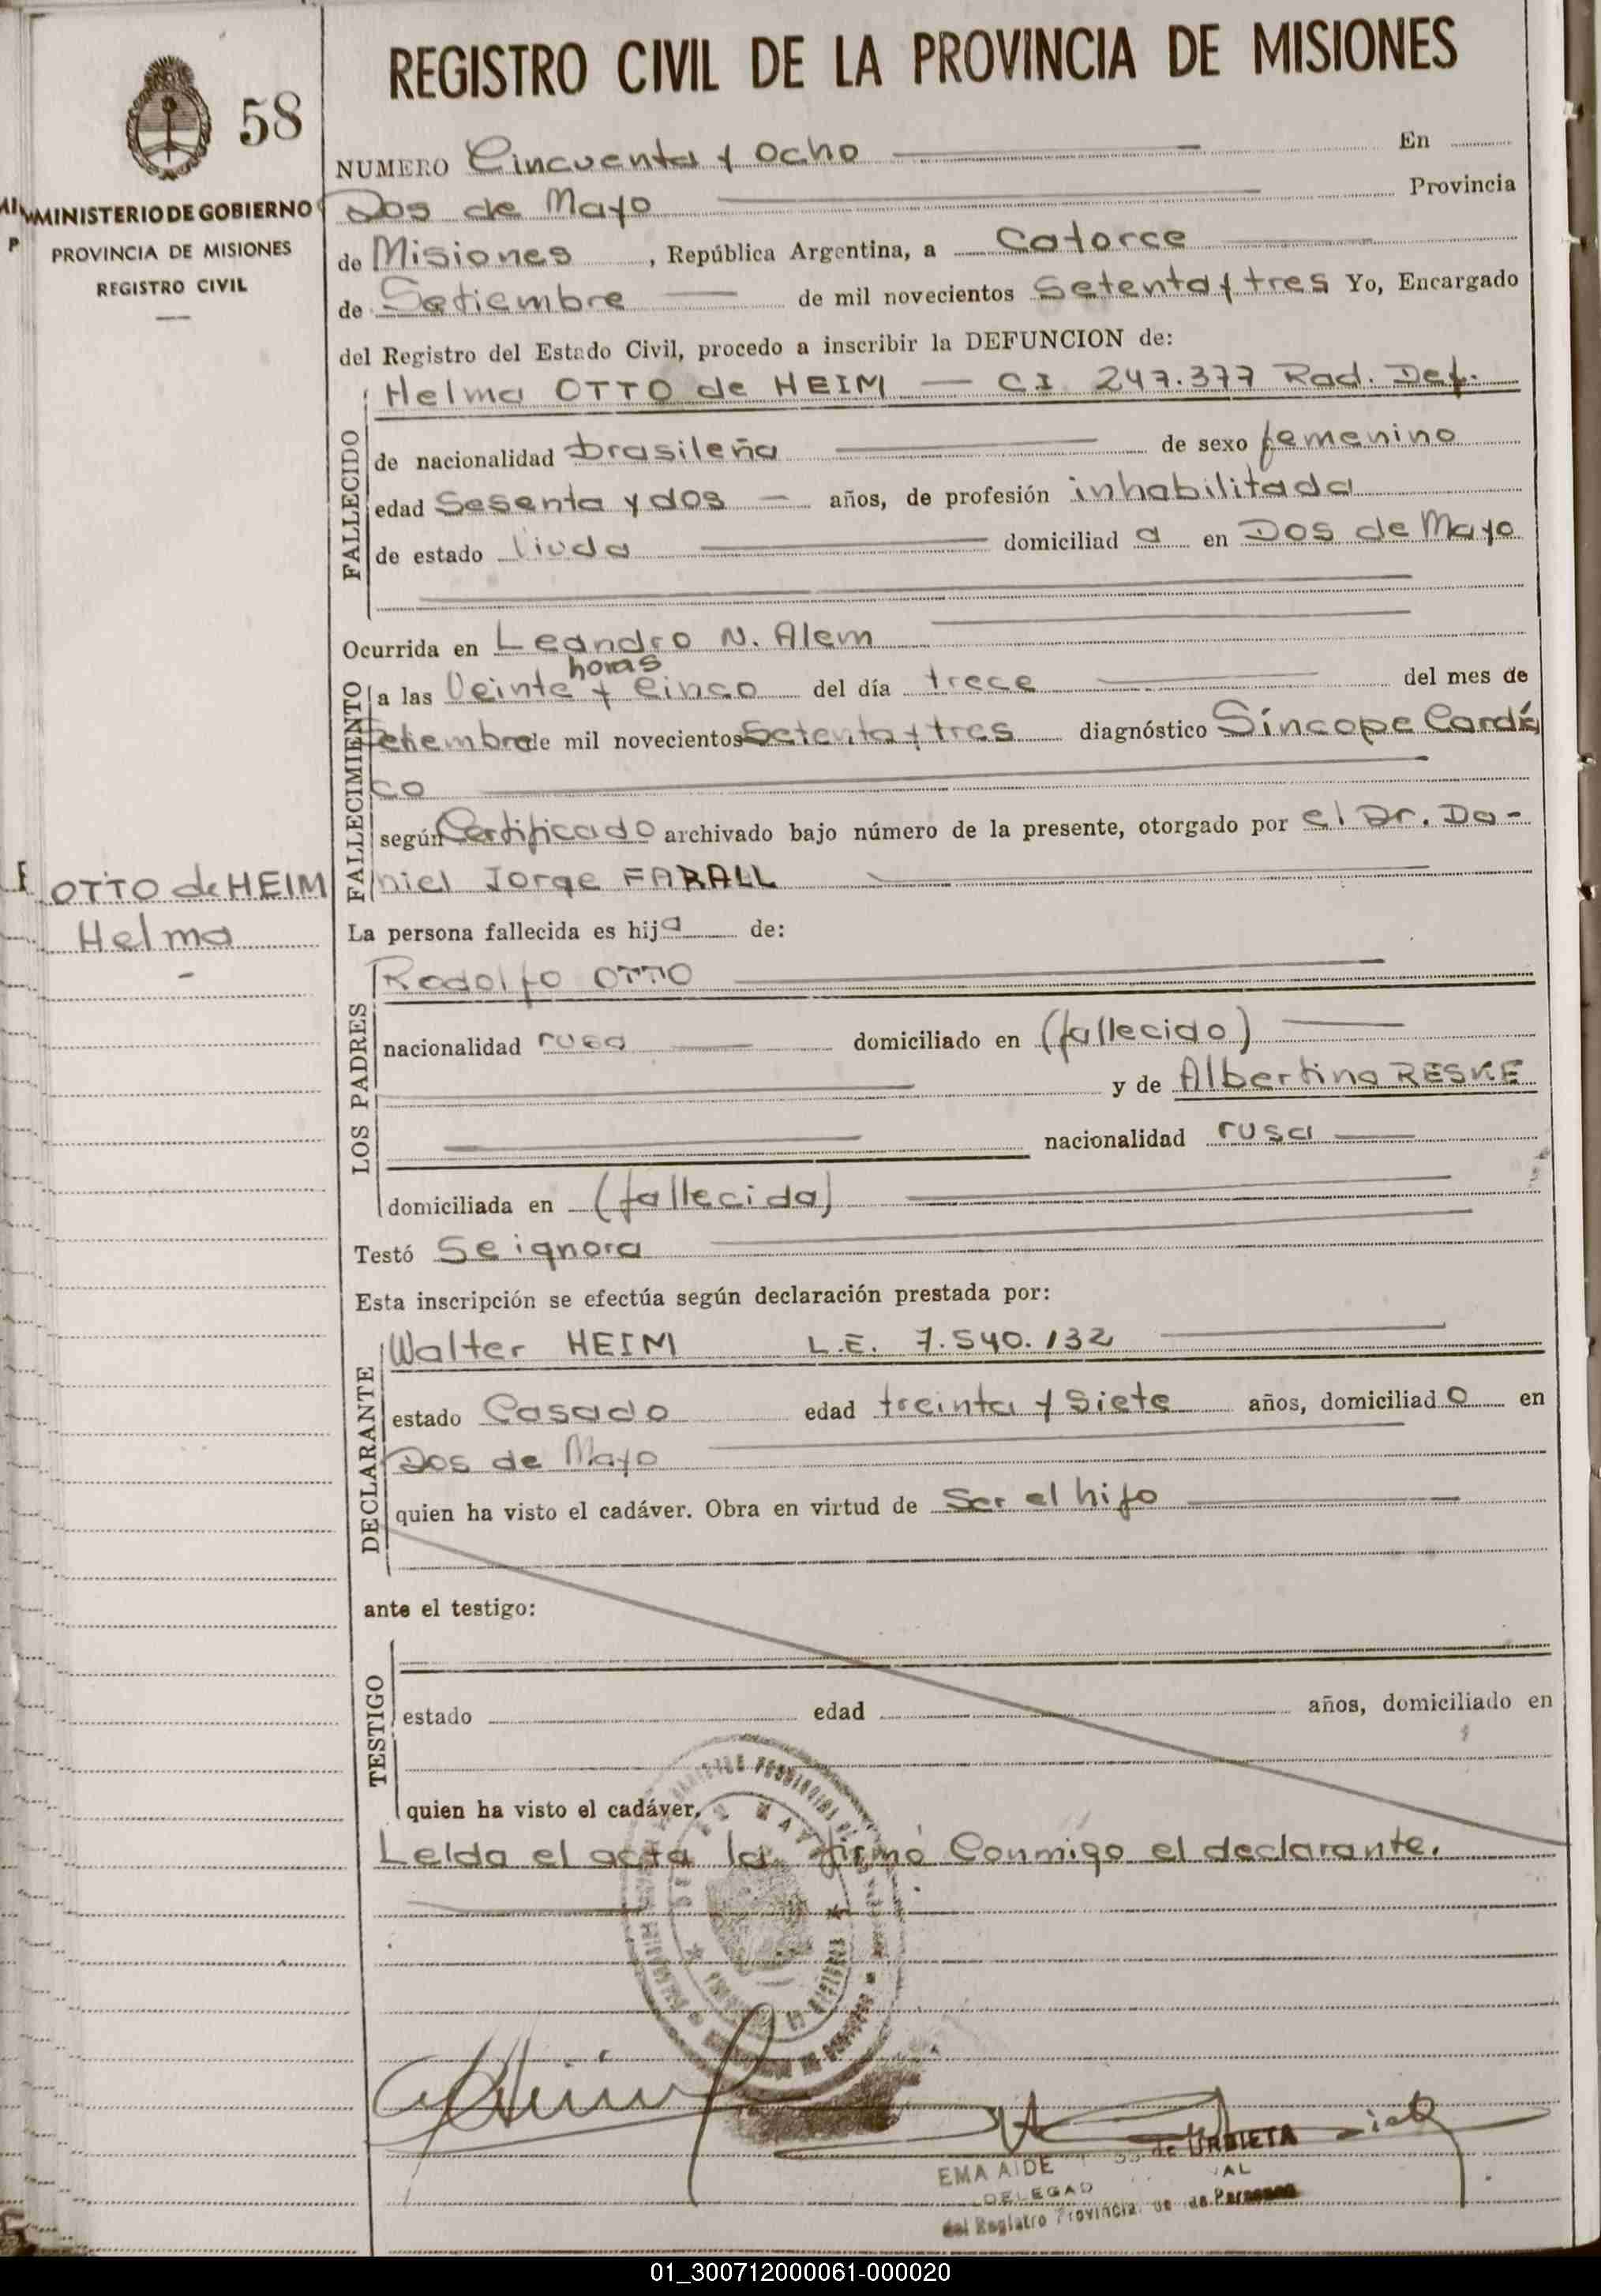 REGISTRO CIVIL DE LA PROVINCIA DE MISIONES
58
MINISTERIO DE GOBIERNO
PROVINCIA DE MISIONES
REGISTRO CIVIL
NUMERO Cincuenta y Ocho En
Dos de Mayo Provincia
de Misiones, República Argentina, a Catorce
de Setiembre de mil novecientos Setenta y tres Yo, Encargado
del Registro del Estado Civil, procedo a inscribir la DEFUNCION de:
FALLECIDO
Helma OTTO de HEIM — CI 247.377 Rad. Def.
de nacionalidad brasileña de sexo femenino
edad Sesenta y dos — años, de profesión inhabilitada
de estado Viuda domiciliad a en Dos de Mayo
Ocurrida en Leandro N. Alem
FALLECIMIENTO
horas
a las Veinte y Cinco del día trece del mes de
Setiembre de mil novecientos Setenta y tres diagnóstico Síncope Cardía
co
según Certificado archivado bajo número de la presente, otorgado por el Dr. Da-
niel Jorge FARALL
OTTO de HEIM
Helma
-
La persona fallecida es hija de:
LOS PADRES
Rodolfo OTTO
nacionalidad rusa domiciliado en (fallecido)
y de Albertina RESKE
nacionalidad rusa
domiciliada en (fallecida)
Testó Se ignora
Esta inscripción se efectúa según declaración prestada por:
DECLARANTE
Walter HEIM L.E. 7.540.132
estado Casado edad treinta y Siete años, domiciliado en
Dos de Mayo
quien ha visto el cadáver. Obra en virtud de Ser el hijo
ante el testigo:
TESTIGO
estado edad años, domiciliado en
quien ha visto el cadáver.
Leída el acta la firmó Conmigo el declarante.
EMA AIDE de URBIETA
DELEGAD AL
del Registro Provincial de las Personas
01_300712000061-000020